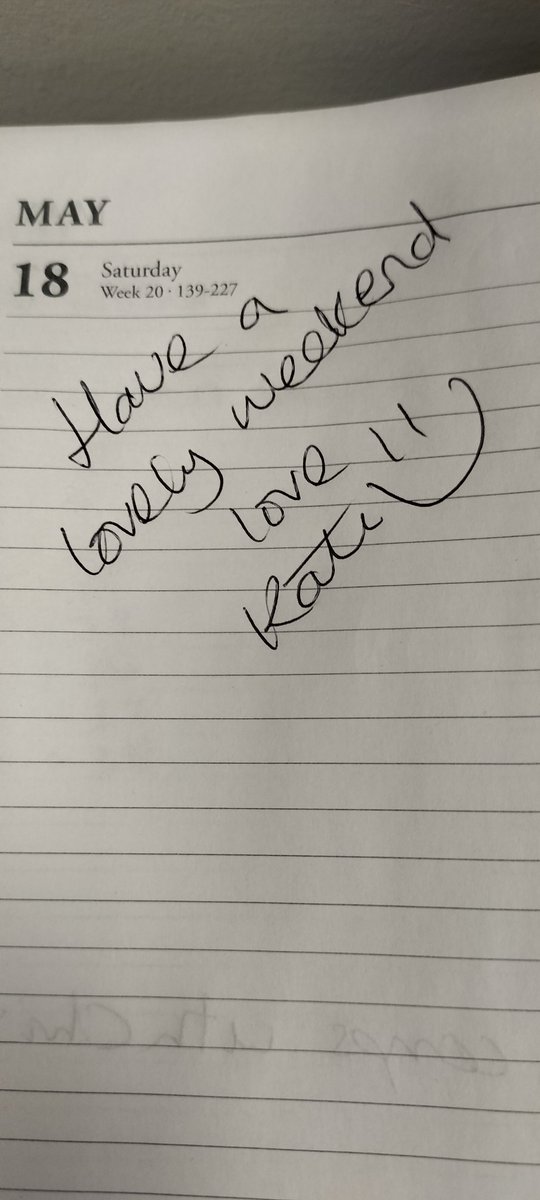 MAY
18 Saturday
Week 20 · 139-227
Have a
lovely weekend
love !!
Kati